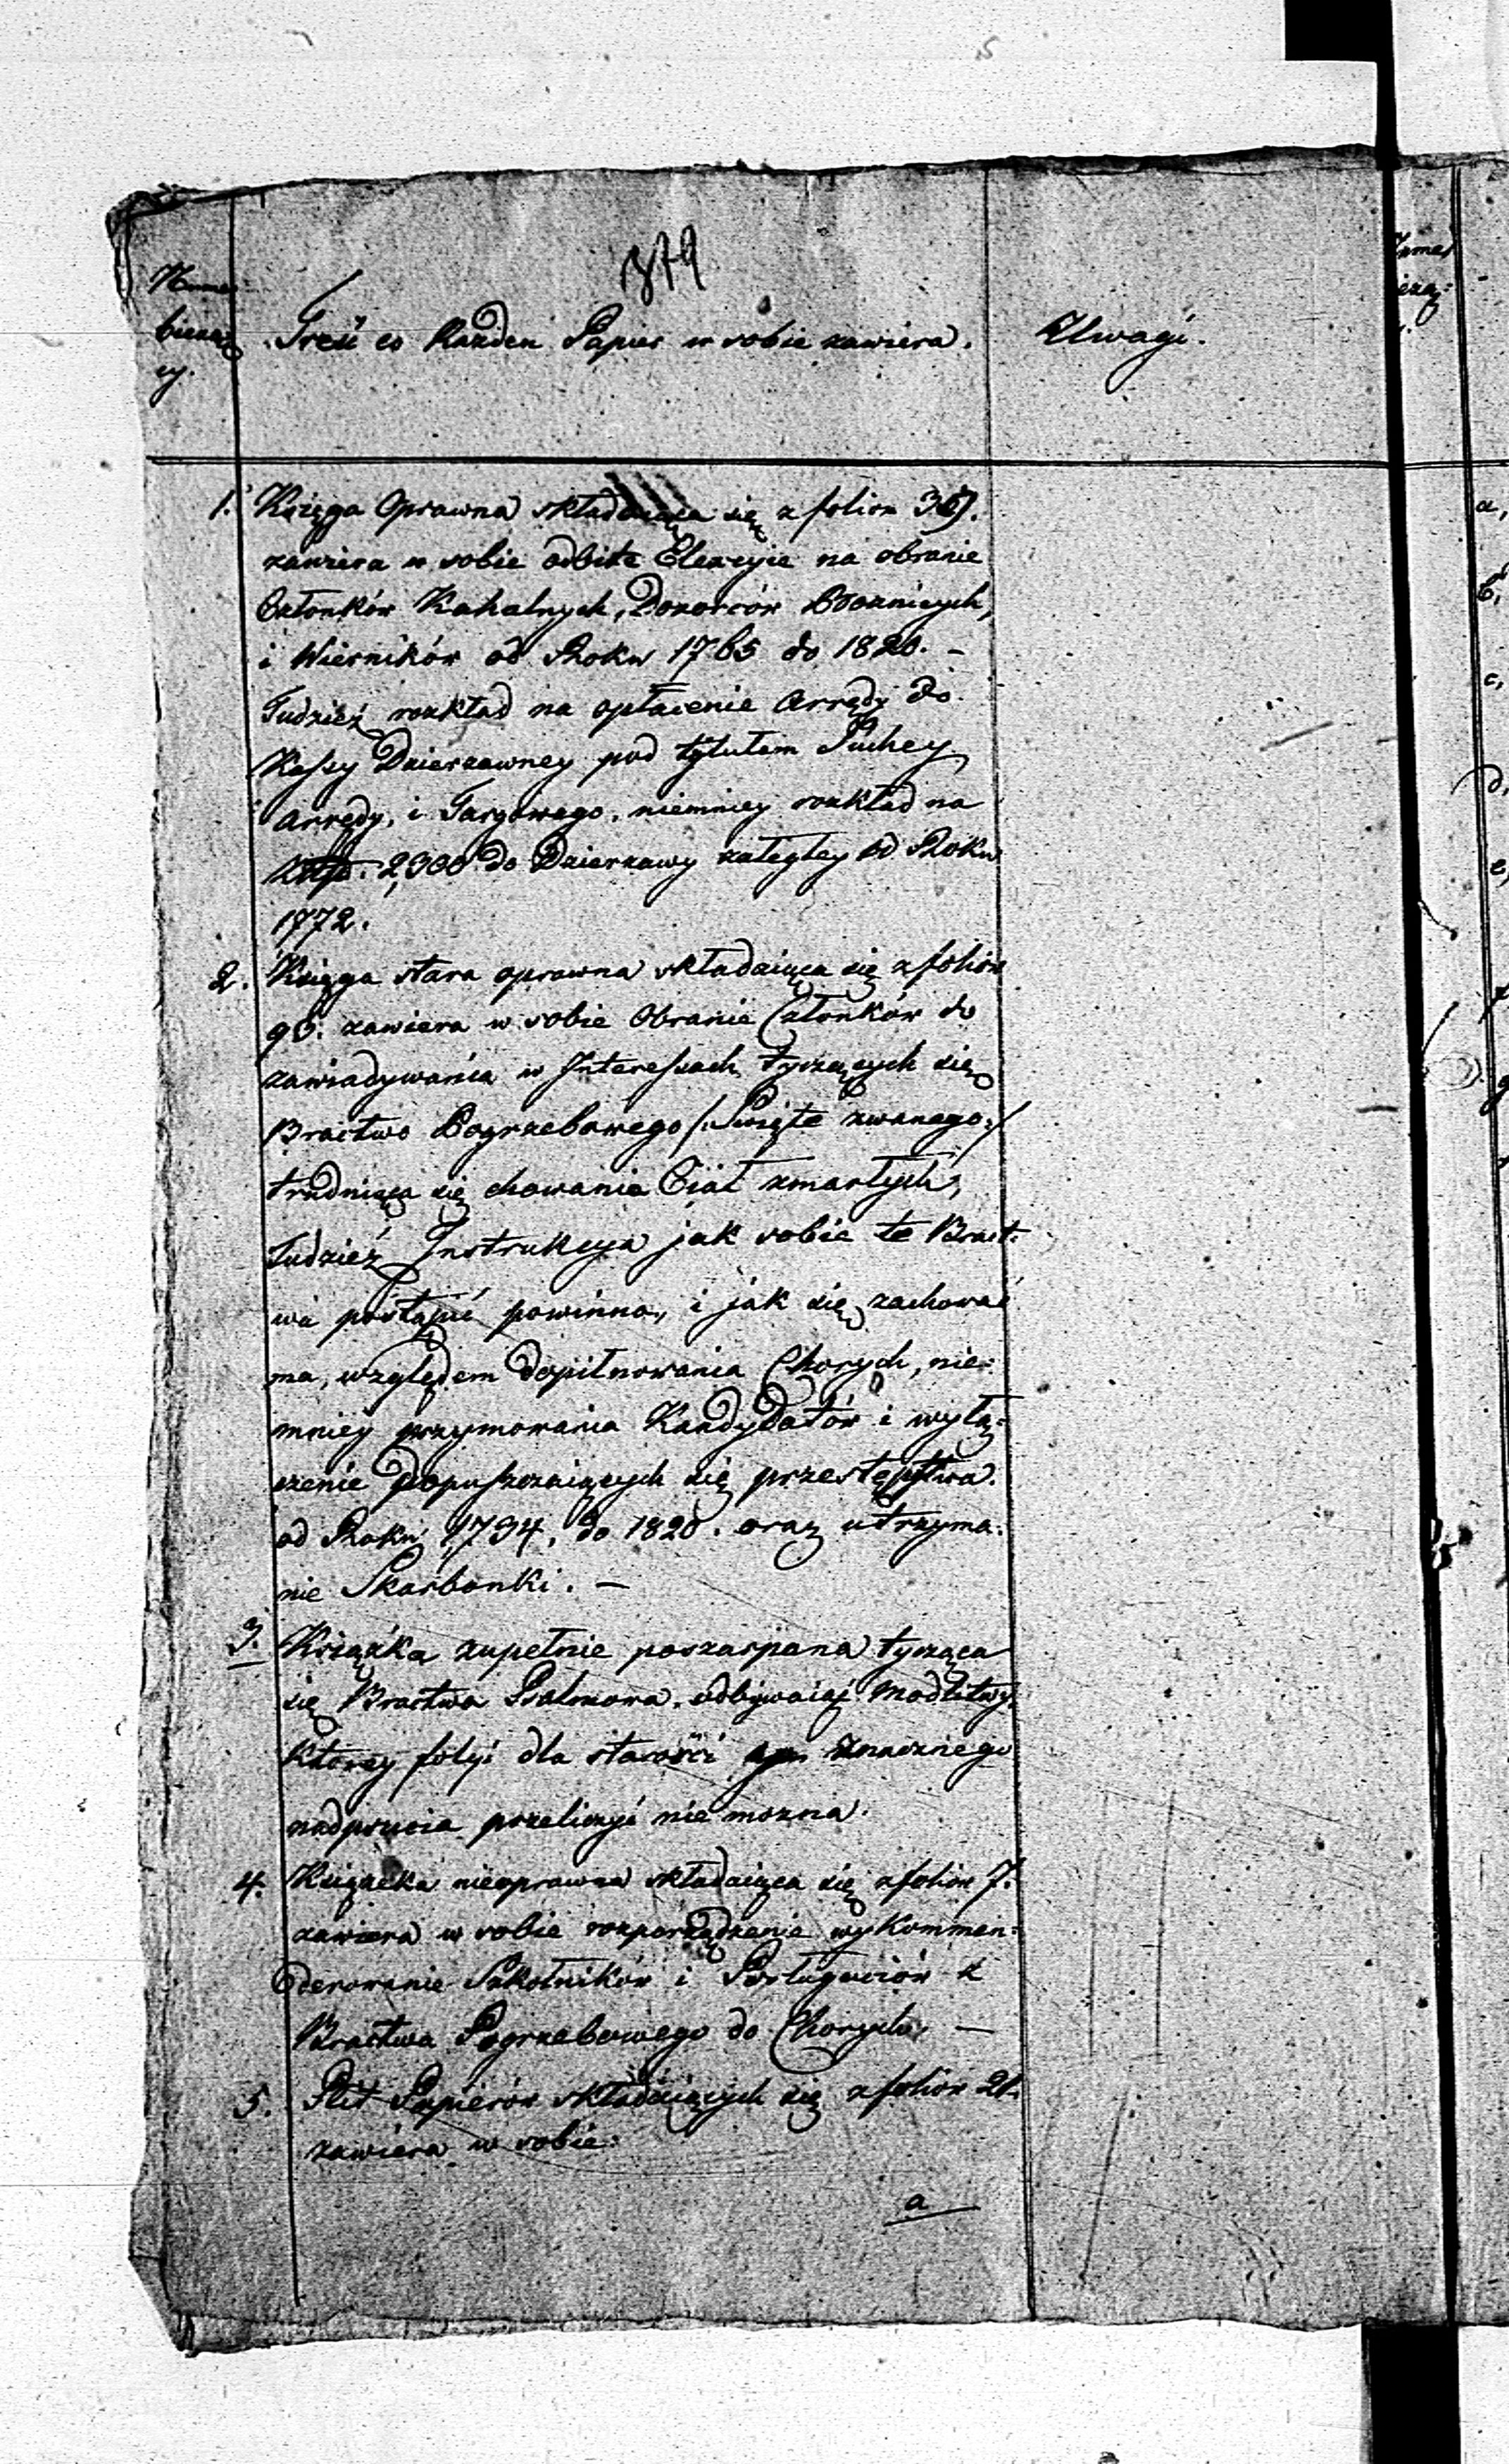 379
Numer
bieżą:
cy.
Treść co Każden Papier w sobie zawiera.
Uwagi.
1. Księga Oprawna składaiąca się z foliow
zawiera w sobie odbite Elekcyie na obranie
Członków Kahalnych, Dozorców Bóżniczych,
i Wierników od Roku 1765 do 1820. –
Tudzież rozkład na opłacenie Arrędy do
Kassy Dzierzawney pod tytułem Suchey
Arrędy, i Targowego, niemniey rozkład na
2,300 do Dzierzawy zaległey od Roku
1772.
2. Księga stara oprawna składaiąca się z foliów
90. zawiera w sobie Obranie Członków do
zawiadywania w Interessach tyczących się
Bractwo Pogrzebowego /: Święte zwanego :/
trudniąca się chowania Ciał zmarłych,
Tudzież Instrukcya jak sobie te Bract:
wa postąpić powinno, i jak się zachować
ma, względem dopilnowania Chorych, nie:
mniey przymowania Kandydatów i wyłą:
czenie dopuszczaiących się przestępstwa.
od Roku 1734. do 1820. oraz utrzyma:
nie Skarbonki. –
3. Książka zupełnie poszarpana tycząca
się Bractwa Psalmowa, odbywaiąc Modlitwy,
Ktorey folyi dla starości znacznego
nadpsucia przeliczyć nie mozna.
4. Książeka nieoprawna składaiąca się z foliów 7.
zawiera w sobie rozporządzenie wykommen:
derowanie Szkolników i Posługaciów z
Bractwa Pogrzebowego do Chorych. –
5. Plit Papierów składaiących się z foliów 21.
zawiera w sobie:
a
a,
b,
c,
d,
e,